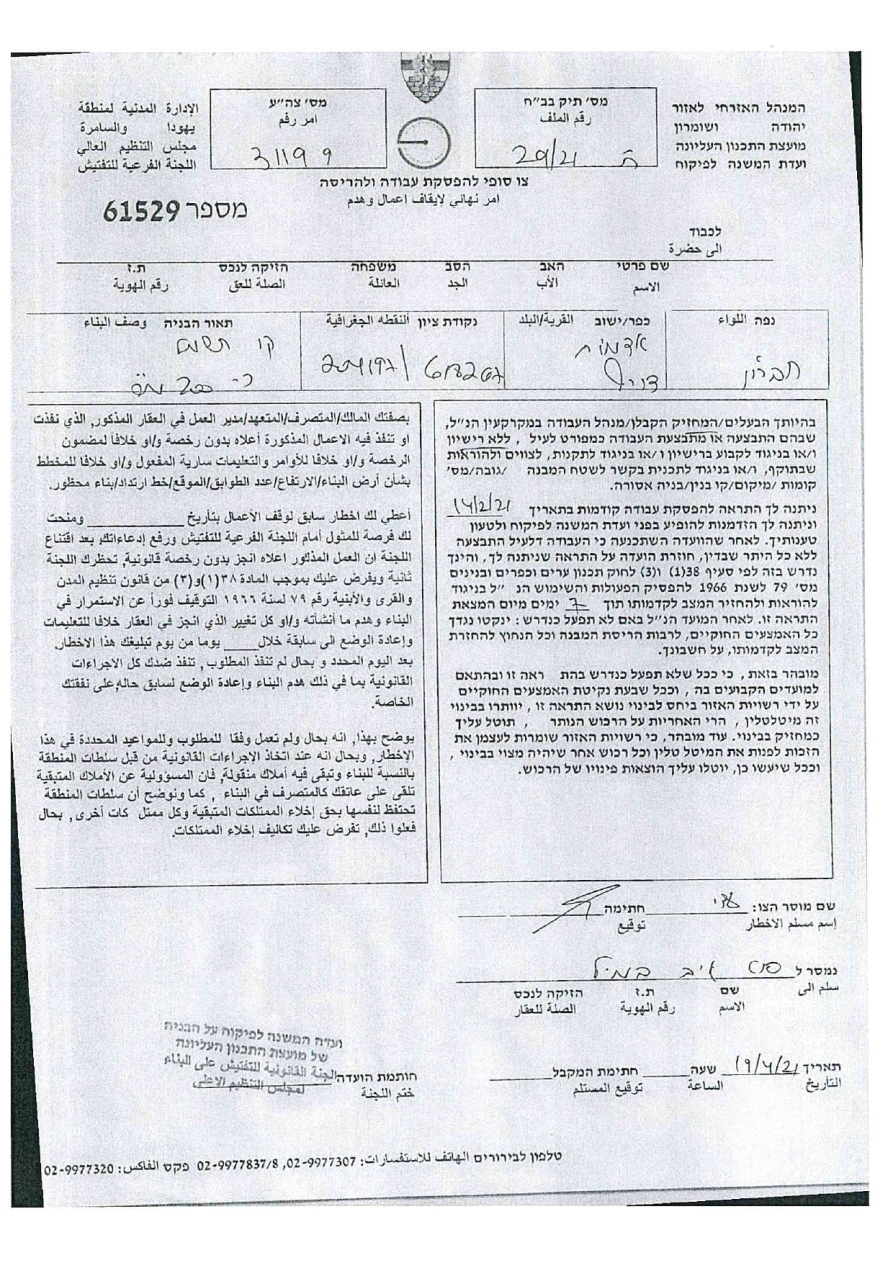 המנהל האזרחי לאזור
יהודה ושומרון
מועצת התכנון העליונה
ועדת המשנה לפיקוח
מס׳ תיק בב״ח
رقم الملف
ח 29/21
מס׳ צה״ע
امر رقم
31199
الإدارة المدنية لمنطقة
يهودا والسامرة
مجلس التنظيم العالي
اللجنة الفرعية للتفتيش
צו סופי להפסקת עבודה ולהריסה
امر نهائي لإيقاف اعمال وهدم
מספר 61529
לכבוד
الى حضرة
שם פרטי האב הסב משפחה הזיקה לנכס ת.ז
الاسم الأب الجد العائلة الصلة للعق رقم الهوية
נפה اللواء
חברון
כפר/ישוב القرية/البلد
אדמות
נקודת ציון النقطه الجغرافية
תאור הבניה وصف البناء
קו
בהיותך הבעלים/המחזיק הקבלן/מנהל העבודה במקרקעין הנ״ל,
שבהם התבצעה או מתבצעת העבודה כמפורט לעיל , ללא רישיון
ו/או בניגוד לקבוע ברישיון ו/או בניגוד לתקנות, לצווים ולהוראות
שבתוקף, ו/או בניגוד לתכנית בקשר לשטח המבנה /גובה/מס׳
קומות /מיקום/קו בנין/בניה אסורה.
ניתנה לך התראה להפסקת עבודה קודמות בתאריך 14/2/21
וניתנה לך הזדמנות להופיע בפני ועדת המשנה לפיקוח ולטעון
טענותיך. לאחר שהוועדה השתכנעה כי העבודה דלעיל התבצעה
ללא כל היתר שבדין, חוזרת הועדה על התראה שניתנה לך, והינך
נדרש בזה לפי סעיף 38(1) ו(3) לחוק תכנון ערים וכפרים ובנינים
מס׳ 79 לשנת 1966 להפסיק הפעולות והשימוש הנ ״ל בניגוד
להוראות ולהחזיר המצב לקדמותו תוך 7 ימים מיום המצאת
התראה זו. לאחר המועד הנ״ל באם לא תפעל כנדרש : ינקטו נגדך
כל האמצעים החוקיים, לרבות הריסת המבנה וכל הנחוץ להחזרת
המצב לקדמותו, על חשבונך.
מובהר בזאת , כי ככל שלא תפעל כנדרש בהת ראה זו ובהתאם
למועדים הקבועים בה , וככל שבעת נקיטת האמצעים החוקיים
על ידי רשויות האזור ביחס לבינוי נושא התראה זו , יוותרו בבינוי
זה מיטלטלין , הרי האחריות על הרכוש הנותר , תוטל עליך
כמחזיק בבינוי. עוד מובהר, כי רשויות האזור שומרות לעצמן את
הזכות לפנות את המיטל טלין וכל רכוש אחר שיהיה מצוי בבינוי ,
וככל שיעשו כן, יוטלו עליך הוצאות פינויו של הרכוש.
بصفتك المالك/المتصرف/المتعهد/مدير العمل في العقار المذكور, الذي نفذت
او تنفذ فيه الاعمال المذكورة أعلاه بدون رخصة و/او خلافا لمضمون
الرخصة و/او خلافا للأوامر والتعليمات سارية المفعول و/او خلافا للمخطط
بشأن أرض البناء/الارتفاع/عدد الطوابق/الموقع/خط ارتداد/بناء محظور.
أعطي لك اخطار سابق لوقف الأعمال بتأريخ ومنحت
لك فرصة للمثول أمام اللجنة الفرعية للتفتيش ورفع إدعاءاتك, بعد اقتناع
اللجنة ان العمل المذكور اعلاه انجز بدون رخصة قانونية, تحظرك اللجنة
ثانية ويفرض عليك بموجب المادة ٣٨(١)و(٣) من قانون تنظيم المدن
والقرى والأبنية رقم ٧٩ لسنة ١٩٦٦ التوقيف فوراً عن الاستمرار في
البناء وهدم ما أنشأته و/او كل تغيير الذي انجز في العقار خلافا للتعليمات
وإعادة الوضع الى سابقة خلال يوما من يوم تبليغك هذا الاخطار.
بعد اليوم المحدد و بحال لم تنفذ المطلوب , تنفذ ضدك كل الاجراءات
القانونية بما في ذلك هدم البناء وإعادة الوضع لسابق حاله,على نفقتك
الخاصة.
يوضح بهذا, انه بحال ولم تعمل وفقا للمطلوب وللمواعيد المحددة في هذا
الإخطار, وبحال انه عند اتخاذ الإجراءات القانونية من قبل سلطات المنطقة
بالنسبة للبناء وتبقى فيه أملاك منقولة, فان المسؤولية عن الأملاك المتبقية
تلقى على عاتقك كالمتصرف في البناء , كما ونوضح أن سلطات المنطقة
تحتفظ لنفسها بحق إخلاء الممتلكات المتبقية وكل ممتل كات أخرى , بحال
فعلوا ذلك, تفرض عليك تكاليف إخلاء الممتلكات.
שם מוסר הצו: חתימה
إسم مسلم الاخطار توقيع
נמסר ל
سلم الى
שם ת.ז הזיקה לנכס
الاسم رقم الهوية الصلة للعقار
תאריך 19/4/21 שעה חתימת המקבל
التأريخ الساعة توقيع المستلم
חותמת הועדה
ختم اللجنة
ועדה המשנה לפיקוח על הבניה
של מועצת התכנון העליונה
الجنة القانونية للتفتيش على البناء
لمجلس التنظيم الاعلى
טלפון לבירורים الهاتف للاستفسارات: 02-9977307, 02-9977837/8 פקס الفاكس: 02-9977320